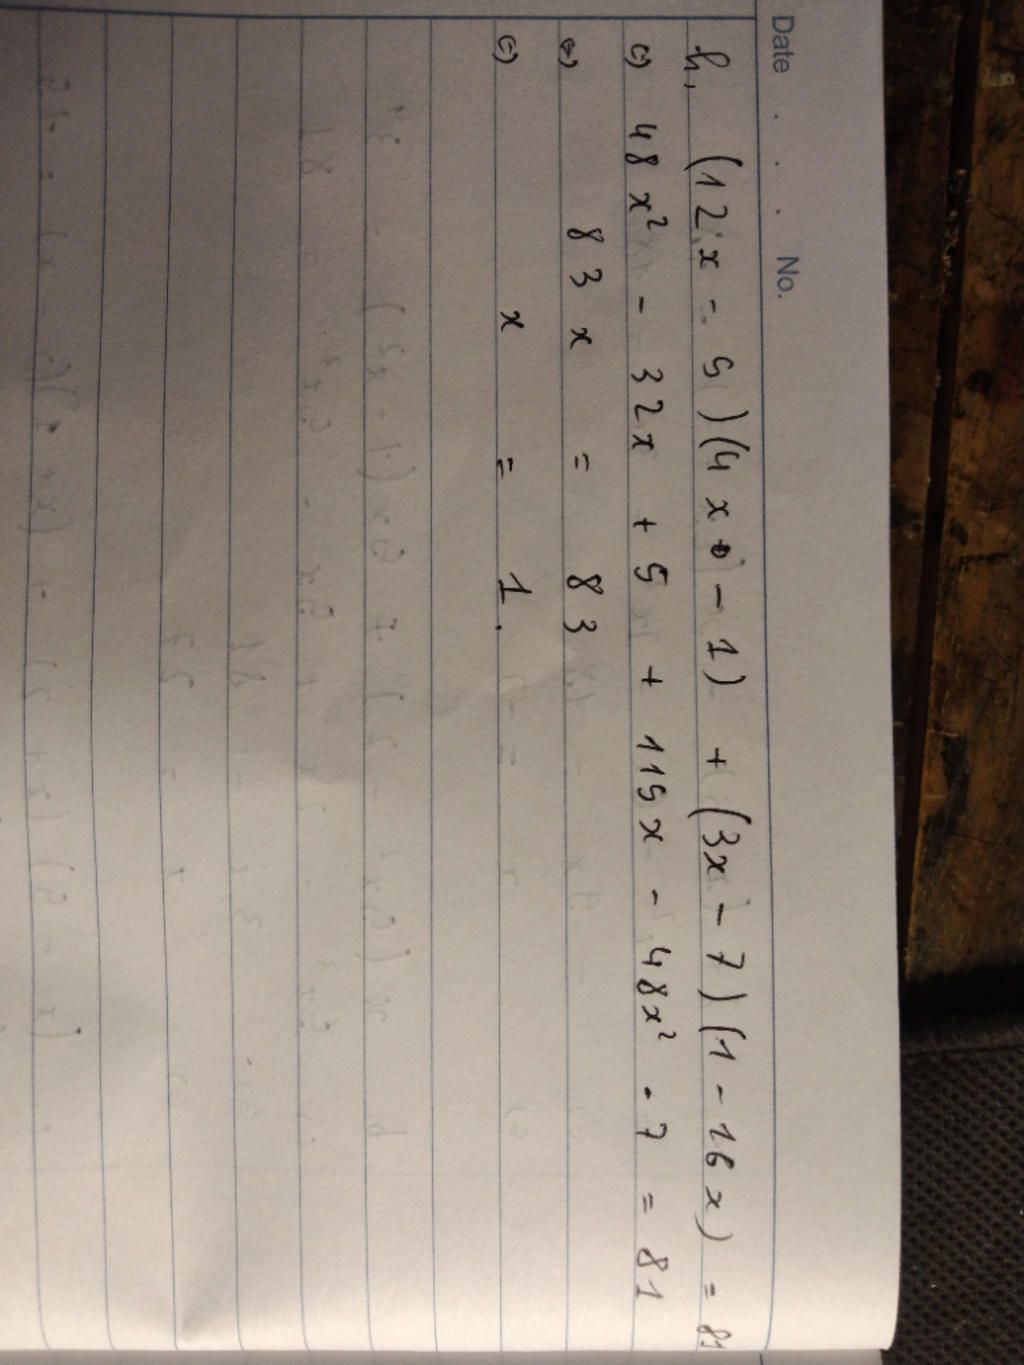 Date . . . No.
h, (12x - 5)(4x - 1) + (3x - 7)(1 - 16x) = 81
⇔ 48x² - 32x + 5 + 115x - 48x² - 7 = 81
⇔ 83x = 83
⇔ x = 1.